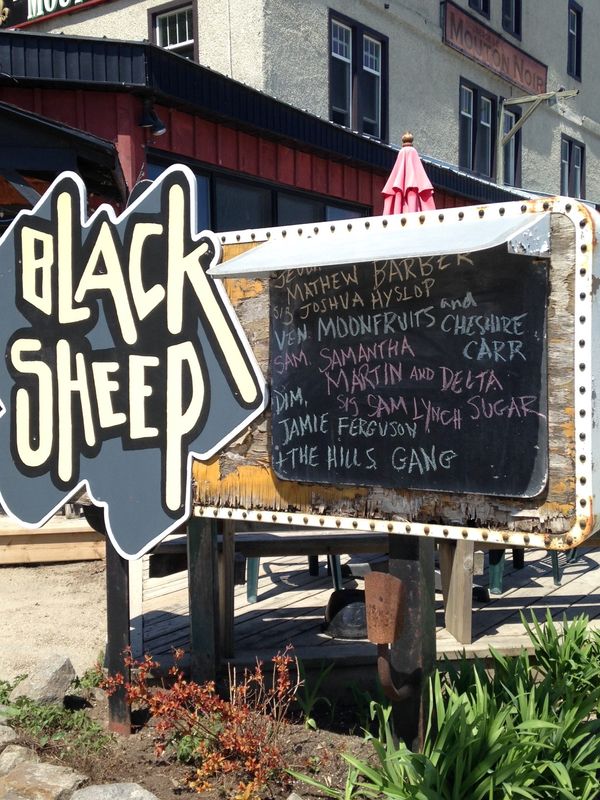 MOUTON NOIR
BLACK
SHEEP
MATHEW BARBER
5/5 JOSHUA HYSLOP
VEN MOONFRUITS and CHESHIRE
SAM, SAMANTHA CARR
MARTIN AND DELTA
DIM, 5/5 SAM LYNCH SUGAR
JAMIE FERGUSON
+ THE HILLS GANG